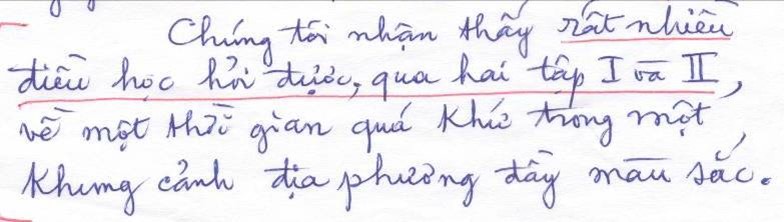 Chúng tôi nhận thấy rất nhiều
điều học hỏi được, qua hai tập I và II,
về một thời gian quá khứ trong một
khung cảnh địa phương đầy màu sắc.